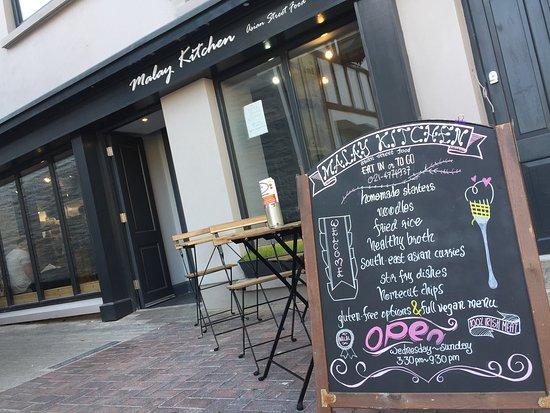 Malay Kitchen Asian Street Food
MALAY KITCHEN
asian street food
EAT IN or TO GO
021-4974937
homemade starters
noodles
fried rice
healthy broth
south east asian curries
stir fry dishes
homecut chips
gluten-free options & full vegan menu
OPEN
wednesday~sunday
3.30pm~9.30pm
100% IRISH MEAT